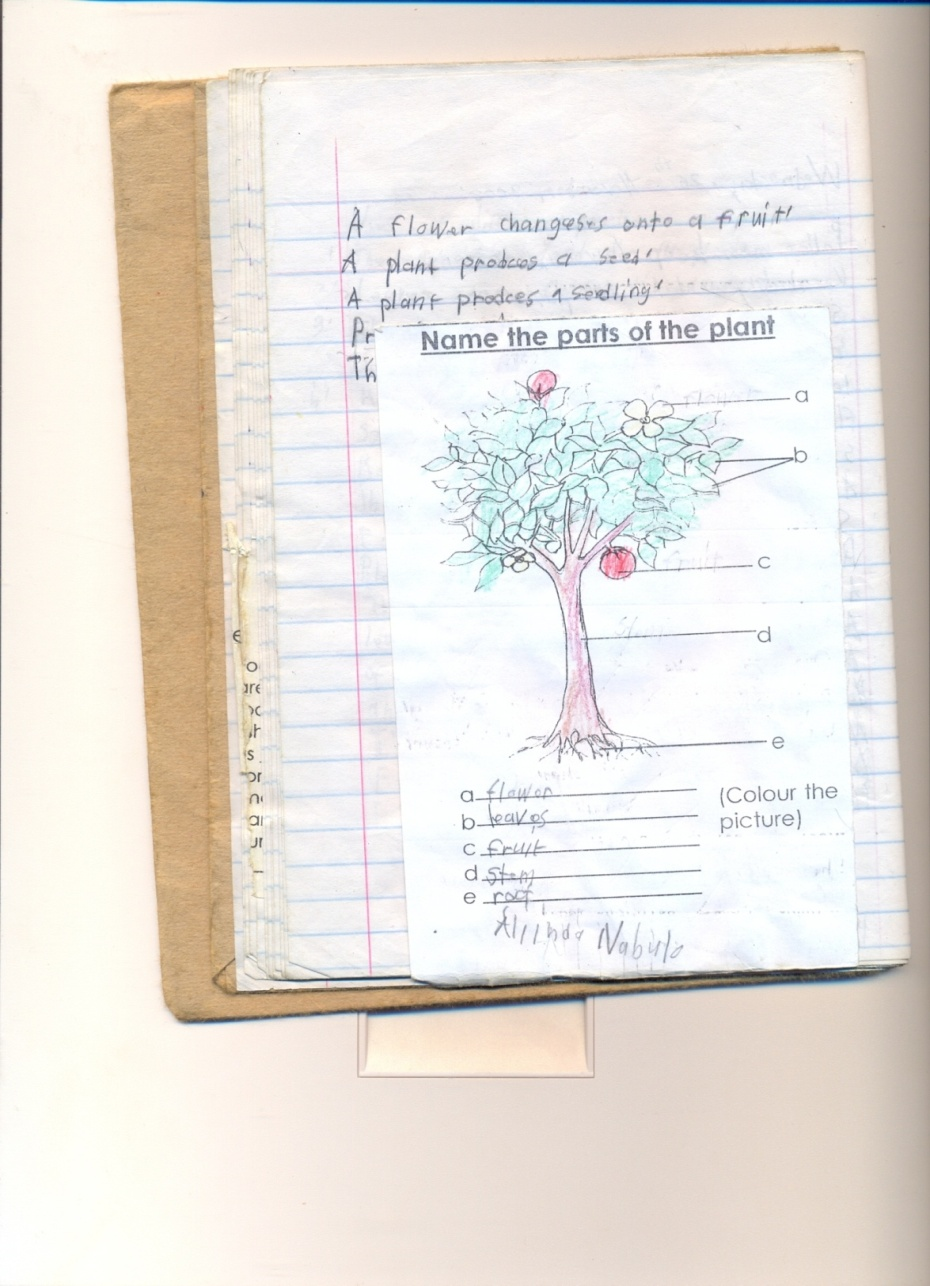 A flower changeses onto a fruit'
A plant probces a seed'
A plant prodces a seedling'
Pr
Th
Name the parts of the plant
a
b
c
d
e
a flower
b leaves
c fruit
d stem
e root
(Colour the
picture)
Nabulo